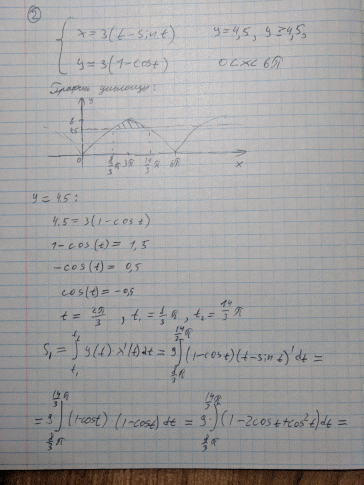 ②
x = 3(t - sin t)    y = 4,5, y ≥ 4,5,
y = 3(1 - cos t)    0 < x < 6π
График циклоиды:
y
6
4,5
0    8/3 π    3π    14/3 π    6π    x
y = 4,5:
4,5 = 3(1 - cos t)
1 - cos(t) = 1,5
- cos(t) = 0,5
cos(t) = -0,5
t = 2π/3, t₁ = 8/3 π, t₂ = 14/3 π
S₁ = ∫_{t₁}^{t₂} y(t) x'(t) dt = 9 ∫_{8/3 π}^{14/3 π} (1 - cos t)(t - sin t)' dt =
= 9 ∫_{8/3 π}^{14/3 π} (1 - cos t)(1 - cos t) dt = 9 ∫_{8/3 π}^{14/3 π} (1 - 2cos t + cos² t) dt =